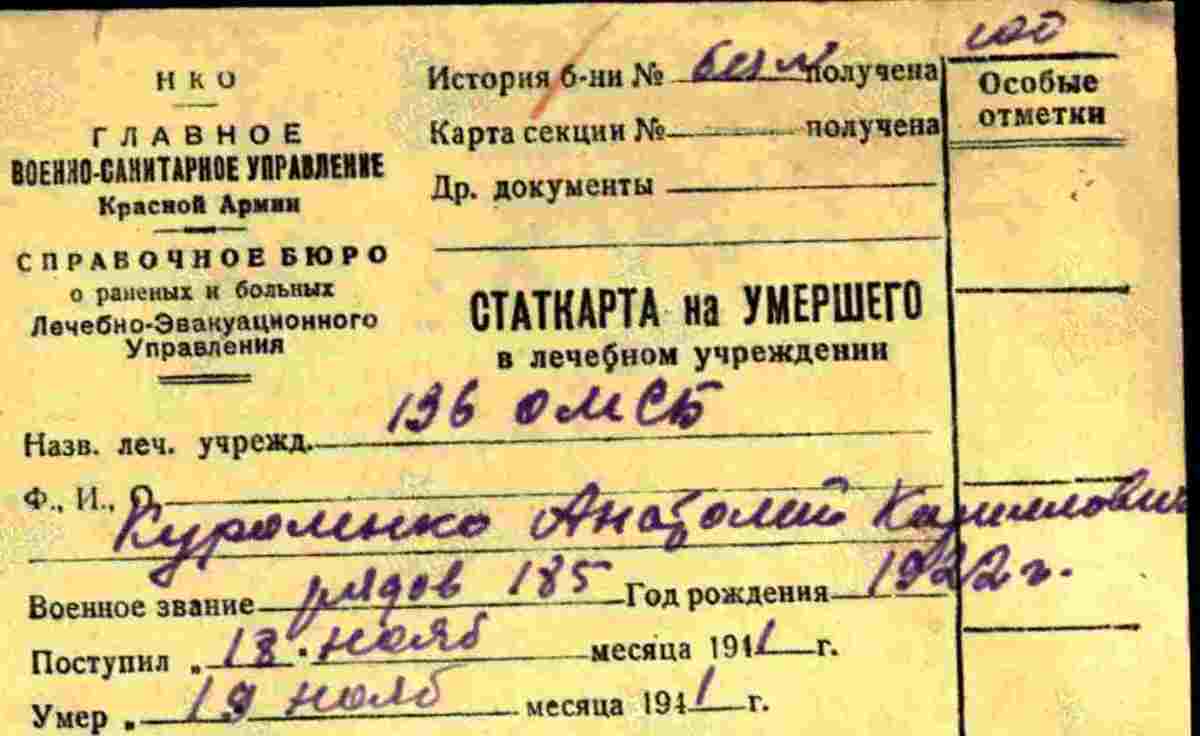 НКО
ГЛАВНОЕ
ВОЕННО-САНИТАРНОЕ УПРАВЛЕНИЕ
Красной Армии
СПРАВОЧНОЕ БЮРО
о раненых и больных
Лечебно-Эвакуационного
Управления
История б-ни № получена
Карта секции № получена
Др. документы
Особые
отметки
СТАТКАРТА на УМЕРШЕГО
в лечебном учреждении
Назв. леч. учрежд. 136 ОМСБ
Ф., И., О.
Куроленко Анатолий Кириллович
Военное звание рядов 185 Год рождения 1922 г.
Поступил „18" нояб месяца 1941 г.
Умер „19 нояб месяца 1941 г.